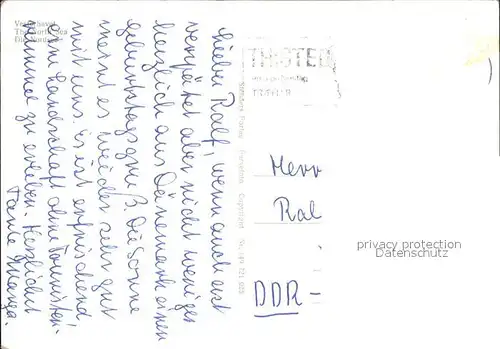 Vesterhavet
The North Sea
Die Nordsee
Lieber Ralf, wenn auch erst
verspätet aber nicht weniger
herzlich aus Dänemark einen
Geburtstagsgruß. Die Sonne
meint es wieder sehr gut
mit uns. Es ist erfrischend
am Landschaft ohne Touristen-
rummel zu erleben. Herzlichst
Tante
THISTED
Stenders Forlag Eneret
Herrn
Ral
DDR -
privacy protection
Datenschutz